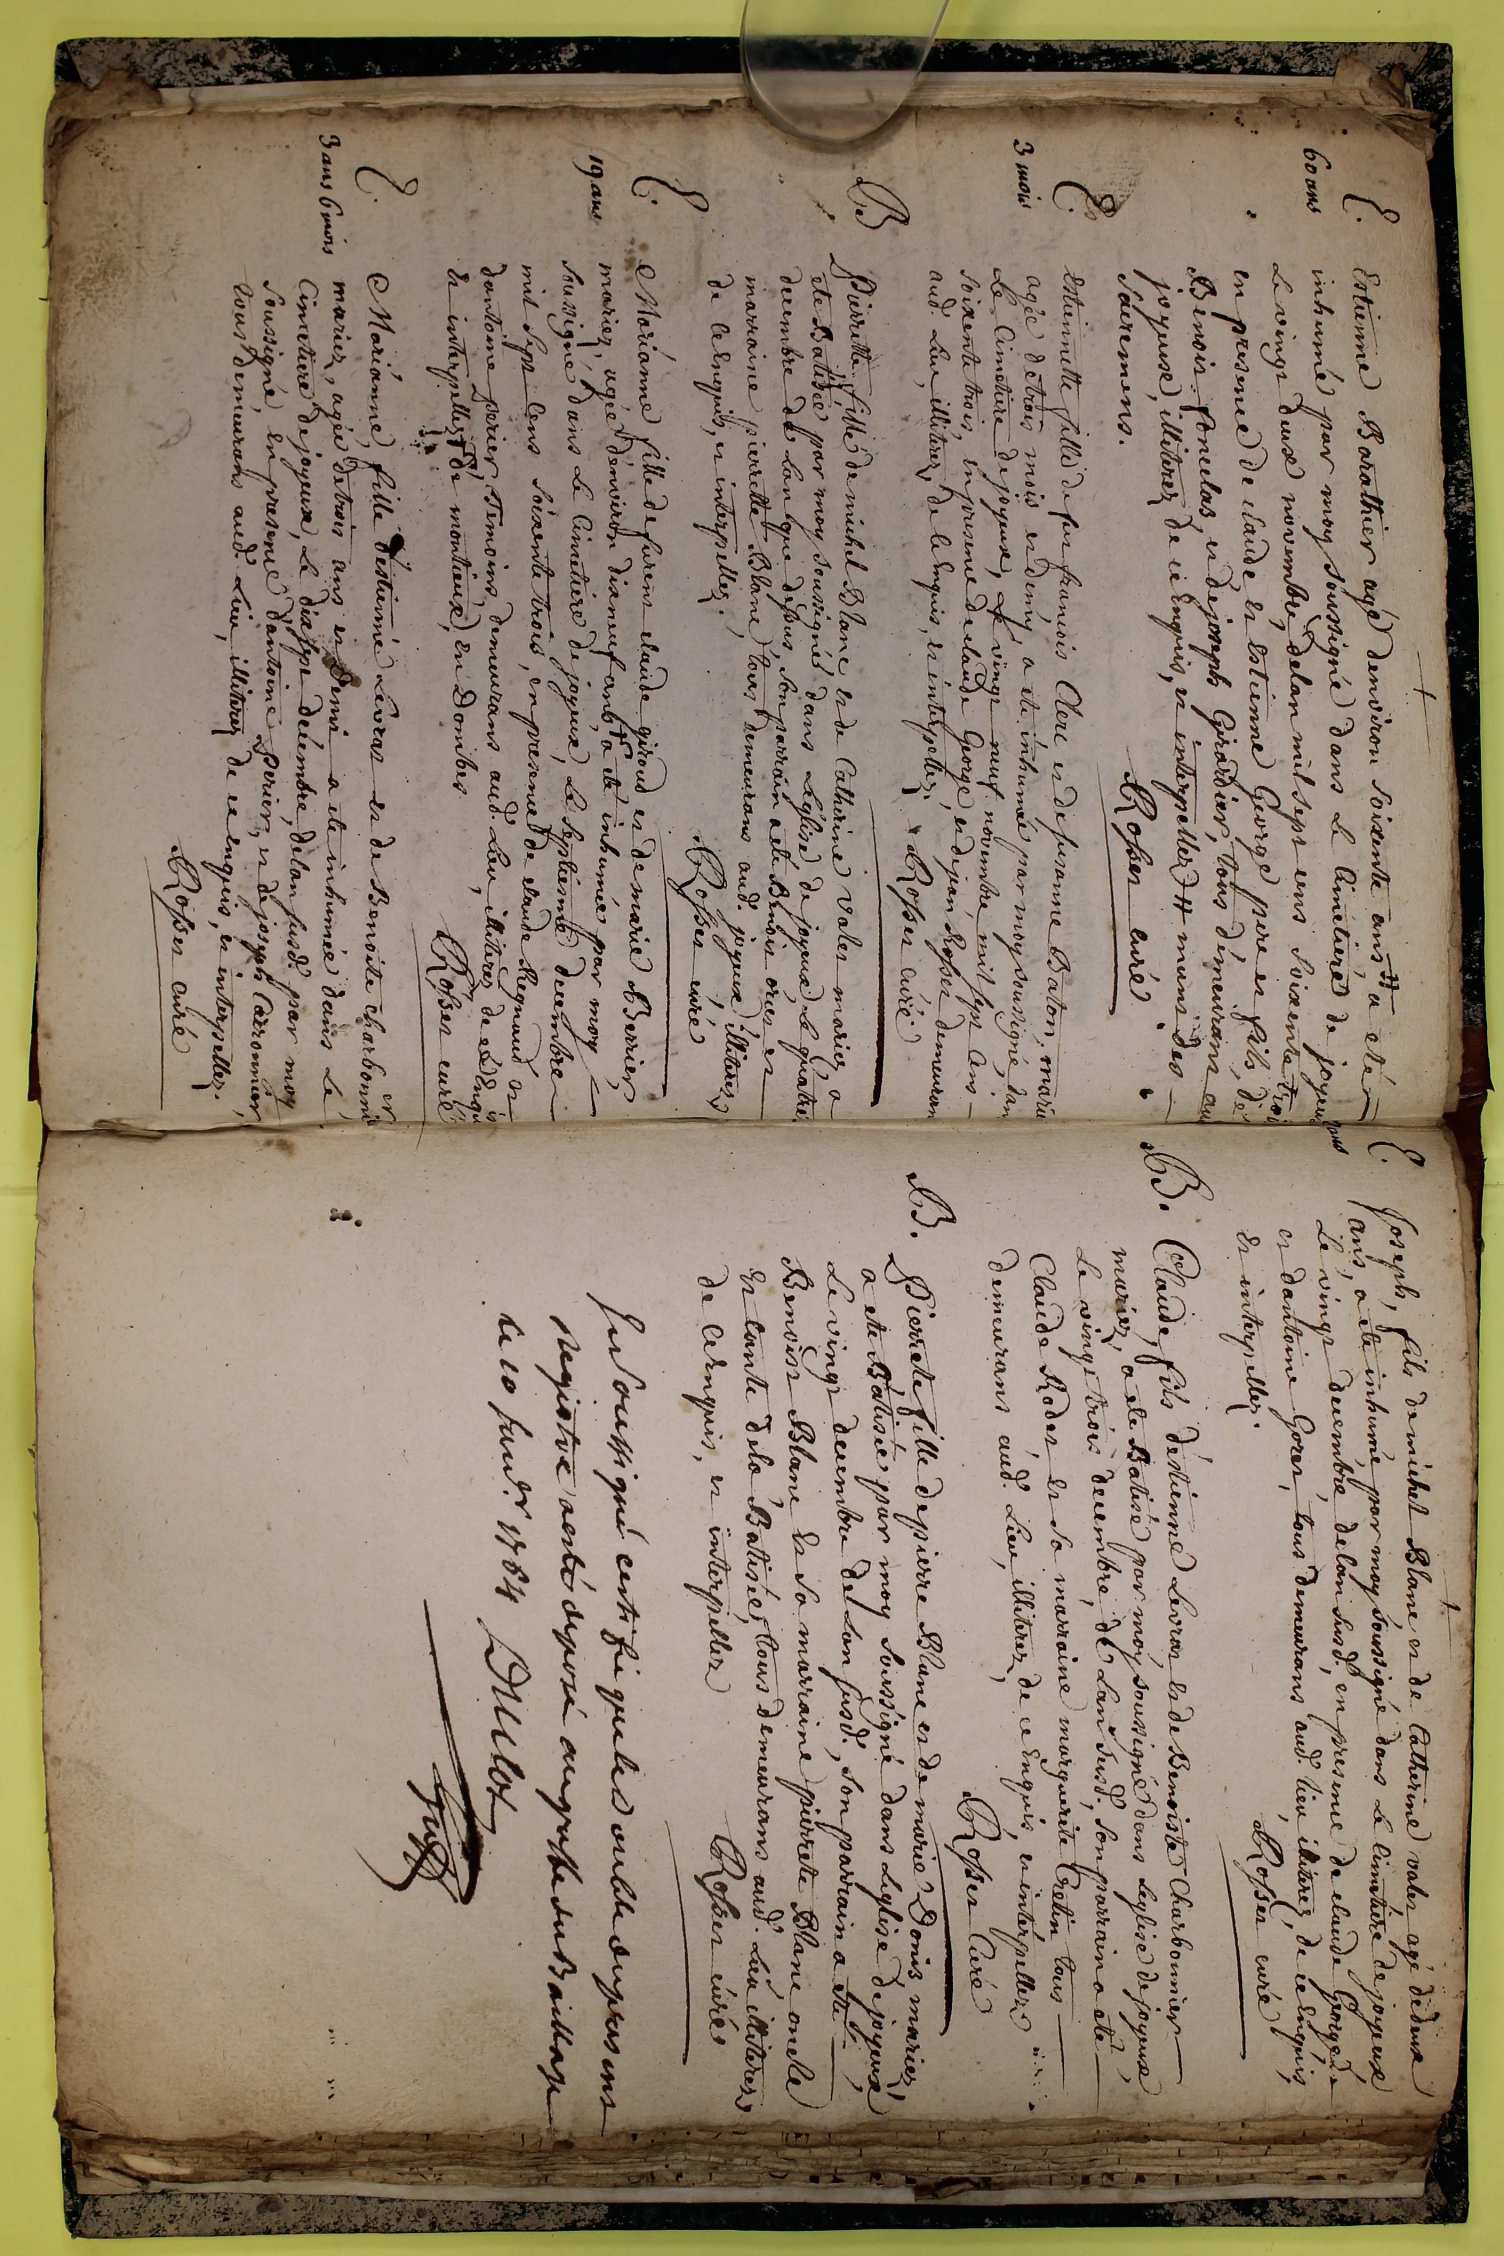 E.
60 ans
Estienne Barathier agé denviron soixente ans # a eté
inhumé par moy soussigné dans le cimetiere de joyeux
Le vingt deux novembre, delan mil sept cens soixente trois
en presence de claude et Estienne George pere et fils, de
Benoit Poncelas, et de joseph Girardier, tous demeurans aud.
joyeux, illiterez de ce Enquis, et interpellez # muni des
sacremens.
Rosser curé
E.
3 mois
Estiennette fille de feu francois Clerc et de susanne Baton, mariez
agée de trois mois et demy a eté inhumée par moy soussigné, dans
Le cimetiere de joyeux, Le vingt neuf novembre, mil sept cens
soixente trois, en presence de claude George, et de jean Rosser demeurans
aud. Lieu, illiterez, de ce Enquis, et interpellez.
Rosser curé
B
Pierrette, fille de michel Blanc et de Catherine Valet mariez, a
eté Batisée par moy soussigné, dans Léglise, de joyeux Le quatre
decembre de Lan que dessus, son parrain a eté Benoit et
marraine pierrette Blanc, tous demeurans aud. joyeux, illiterez
de ce Enquis, et interpellez.
Rosser curé
E.
E.
19 ans
Marianne fille de furent claude giroud et de marie Perrier,
mariez, agée denviron dixneuf ans a eté inhumée par moy
soussigné dans Le Cimetiere de joyeux, Le septiesme decembre
mil sept cens soixente trois, en presence de claude Regnaud et
dantoine perier, témoins, demeurans aud. Lieu, illiterez de ce Enquis
et interpellez de montieux, en Dombes
Rosser curé
E.
3 ans 6 mois
Marianne, fille destienne Levrat et de Benoite charbonnier
mariez, agée de trois ans et demi a eté inhumée dans Le
Cimetiere de joyeux, Le dix sept decembre, delan susd. par moy
soussigné, en presence d'antoine Perier, et de joseph Carronnier,
tous demeurans aud. Lieu, illiterez de ce enquis, et interpellez.
Rosser curé
E.
2 ans
Joseph, fils de michel Blanc et de Catherine valet agé de deux
ans, a eté inhumé par moy soussigné dans Le Cimetiere de joyeux,
Le vingt decembre delan susd. en presence de claude George
et dantoine Goret, tous demeurans aud. lieu illiterez, de ce Enquis,
et interpellez.
Rosser curé
B.
Claude, fils déstienne Levrat et de Benoiste Charbonnier
mariez, a eté Batisé par moy soussigné dans Léglise de joyeux
Le vingt trois decembre, de Lan susd. son parrain a eté
Claude Rodet et sa marraine marguerite Cretin tous
demeurans aud. Lieu, illiterez, de ce Enquis, et interpellez
Rosser Curé
B.
Pierrette fille de pierre Blanc et de marie Donis mariez,
a eté Batisée, par moy soussigné dans Leglise de joyeux
Le vingt decembre de Lan susd., son parrain a eté
Benoist Blanc et sa marraine pierrete Blanc oncle
et tante dela Batisée, tous demeurans aud. Lieu illiterez
de ce enquis, et interpellez
Rosser curé
Je soussigné certifie que les double du present
Registre a esté deposé au greffe du Bailliage
ce 10 janv.er 1764 DUlot
greff